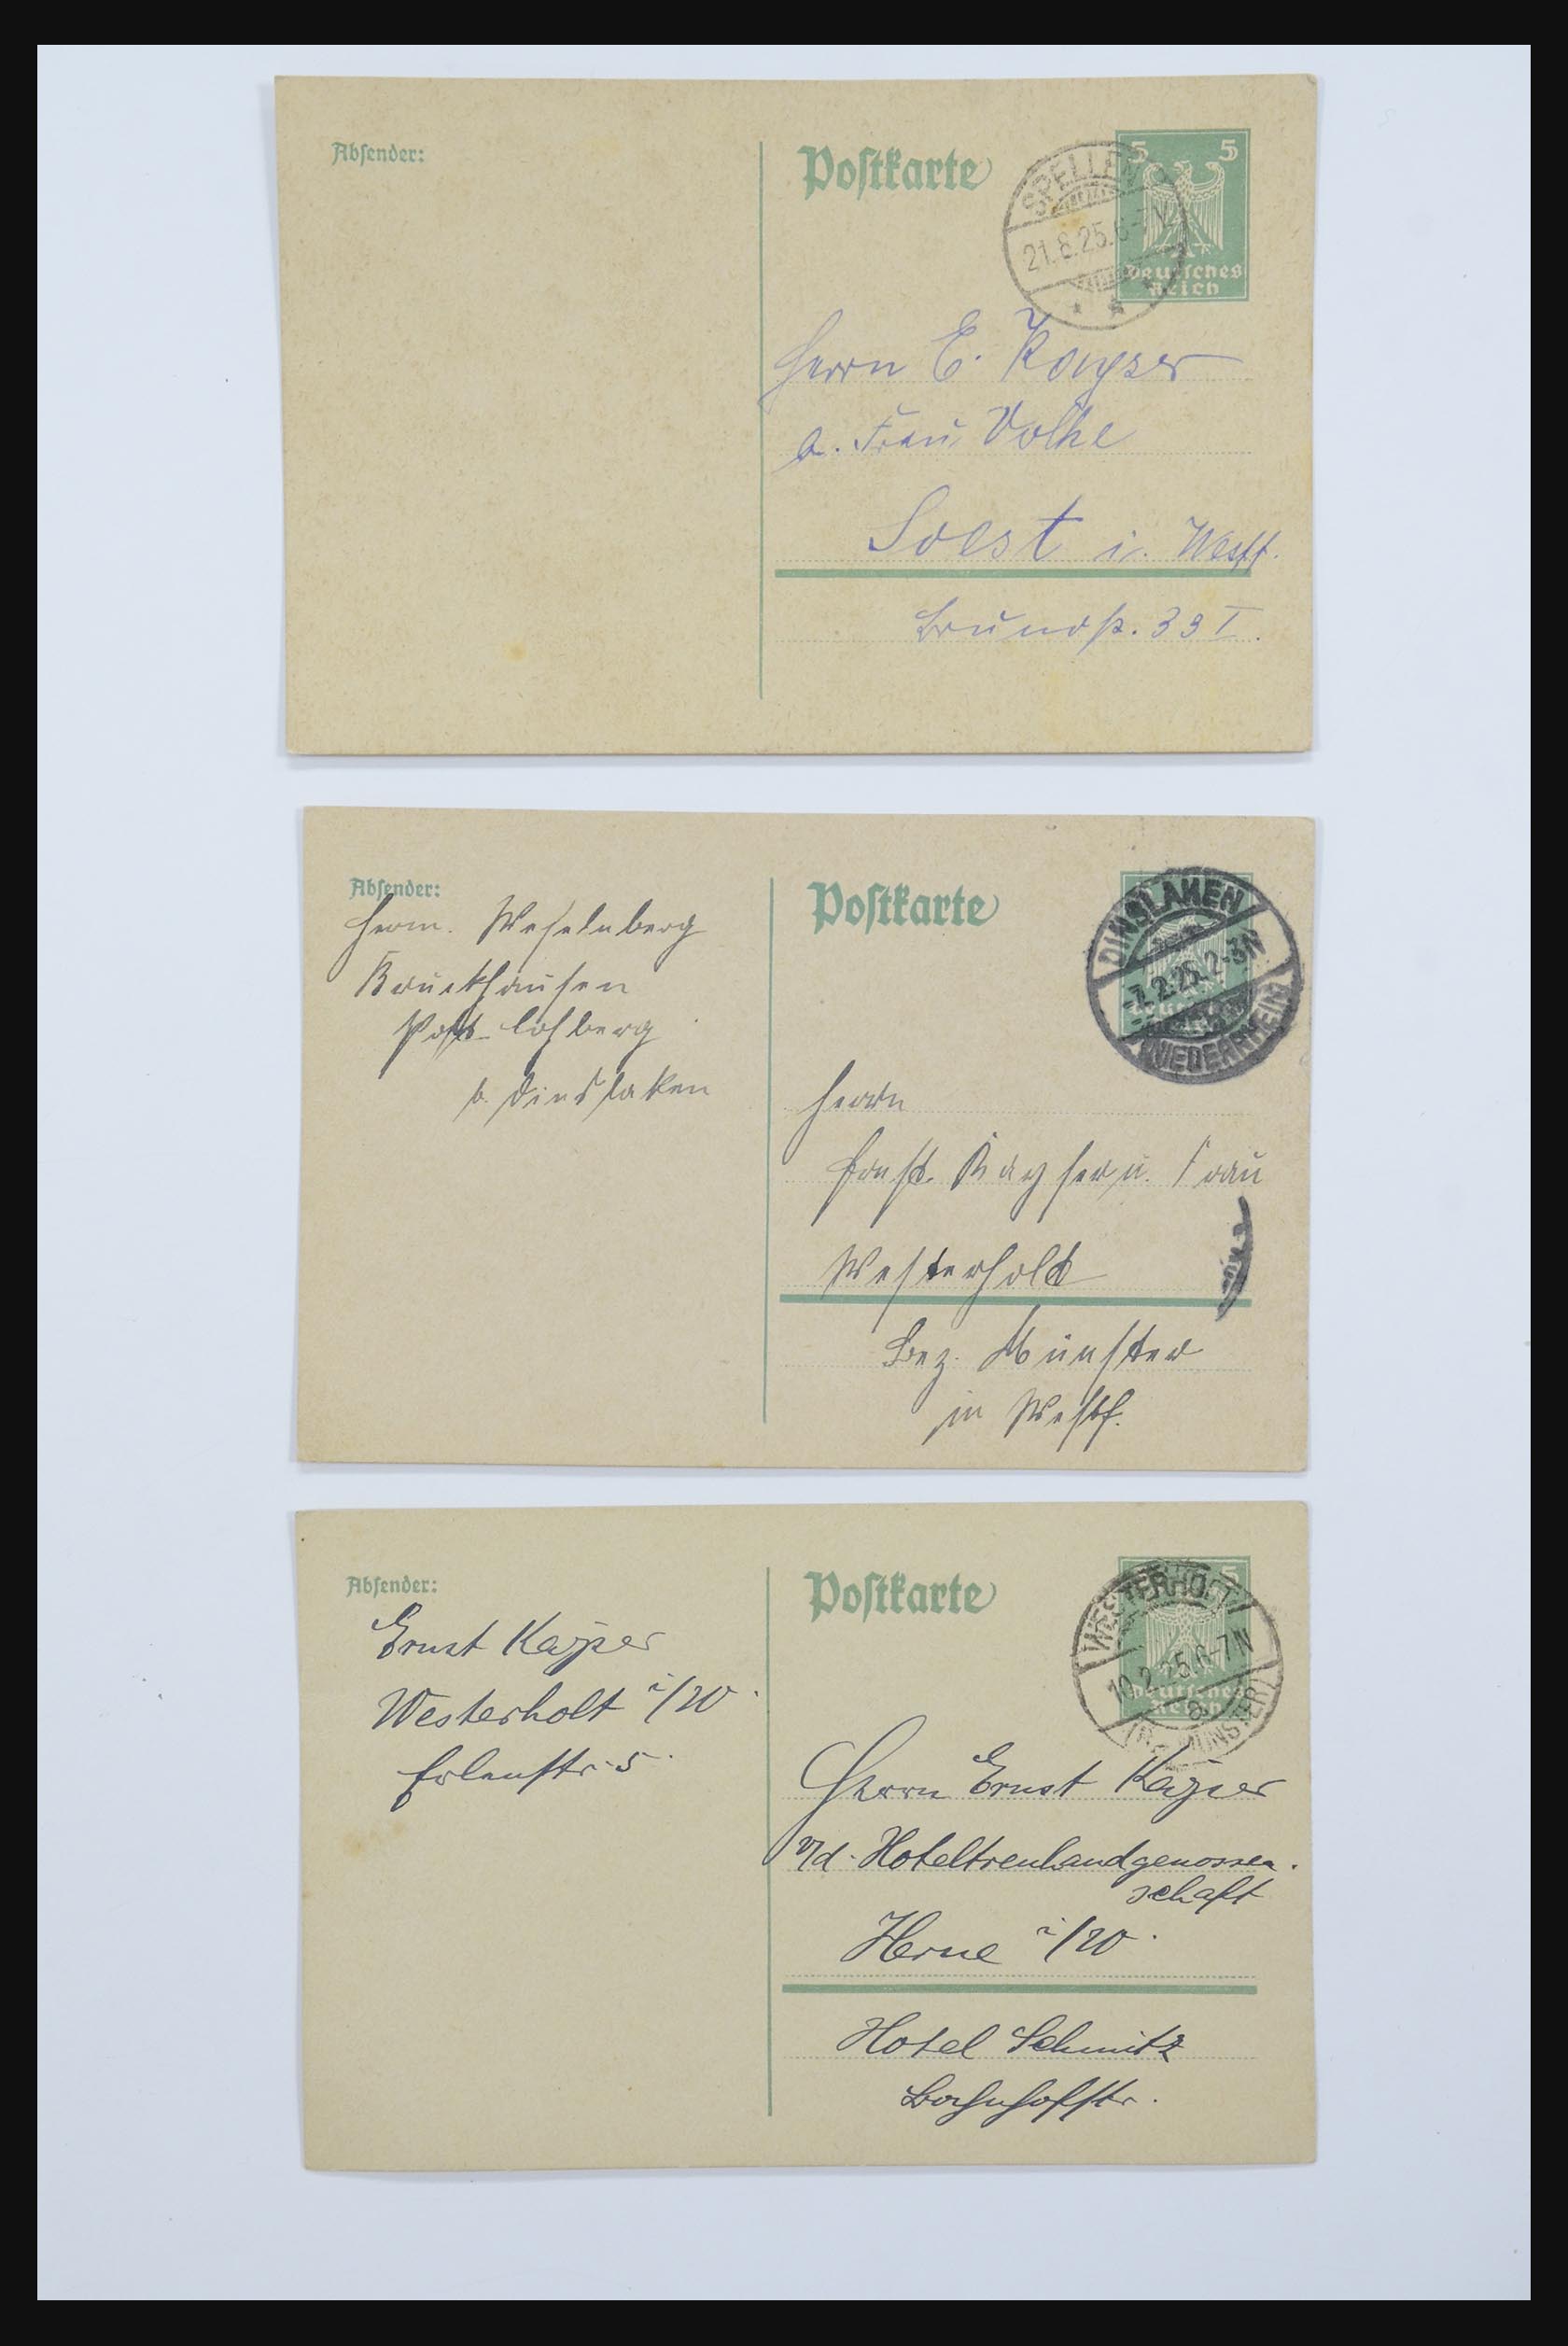 Absender:
Postkarte
5 5
Deutsches
Reich
SPELLEN
21.8.25.6-7V
Herrn E. Kayser
a. Frau Volke
Soest i. Westf.
Brunostr. 33 I.
Absender:
Herm. Weselnberg
Bruckhausen
Post Lohberg
b. Dinslaken
Postkarte
DINSLAKEN
2-3N
(NIEDERRHEIN)
Herrn
Ernst Kayser u. Frau
Westerholt
Bez. Münster
in Westf.
Absender:
Ernst Kayser
Westerholt i/W.
Erlenstr. 5.
Postkarte
5
Deutsches
Reich
WESTERHOLT
10.2.25.6-7N
a
MÜNSTER)
Herrn Ernst Kayser
v/d. Hoteltreuhandgenossen-
schaft
Herne i/W.
Hotel Schmitz
Bahnhofstr.